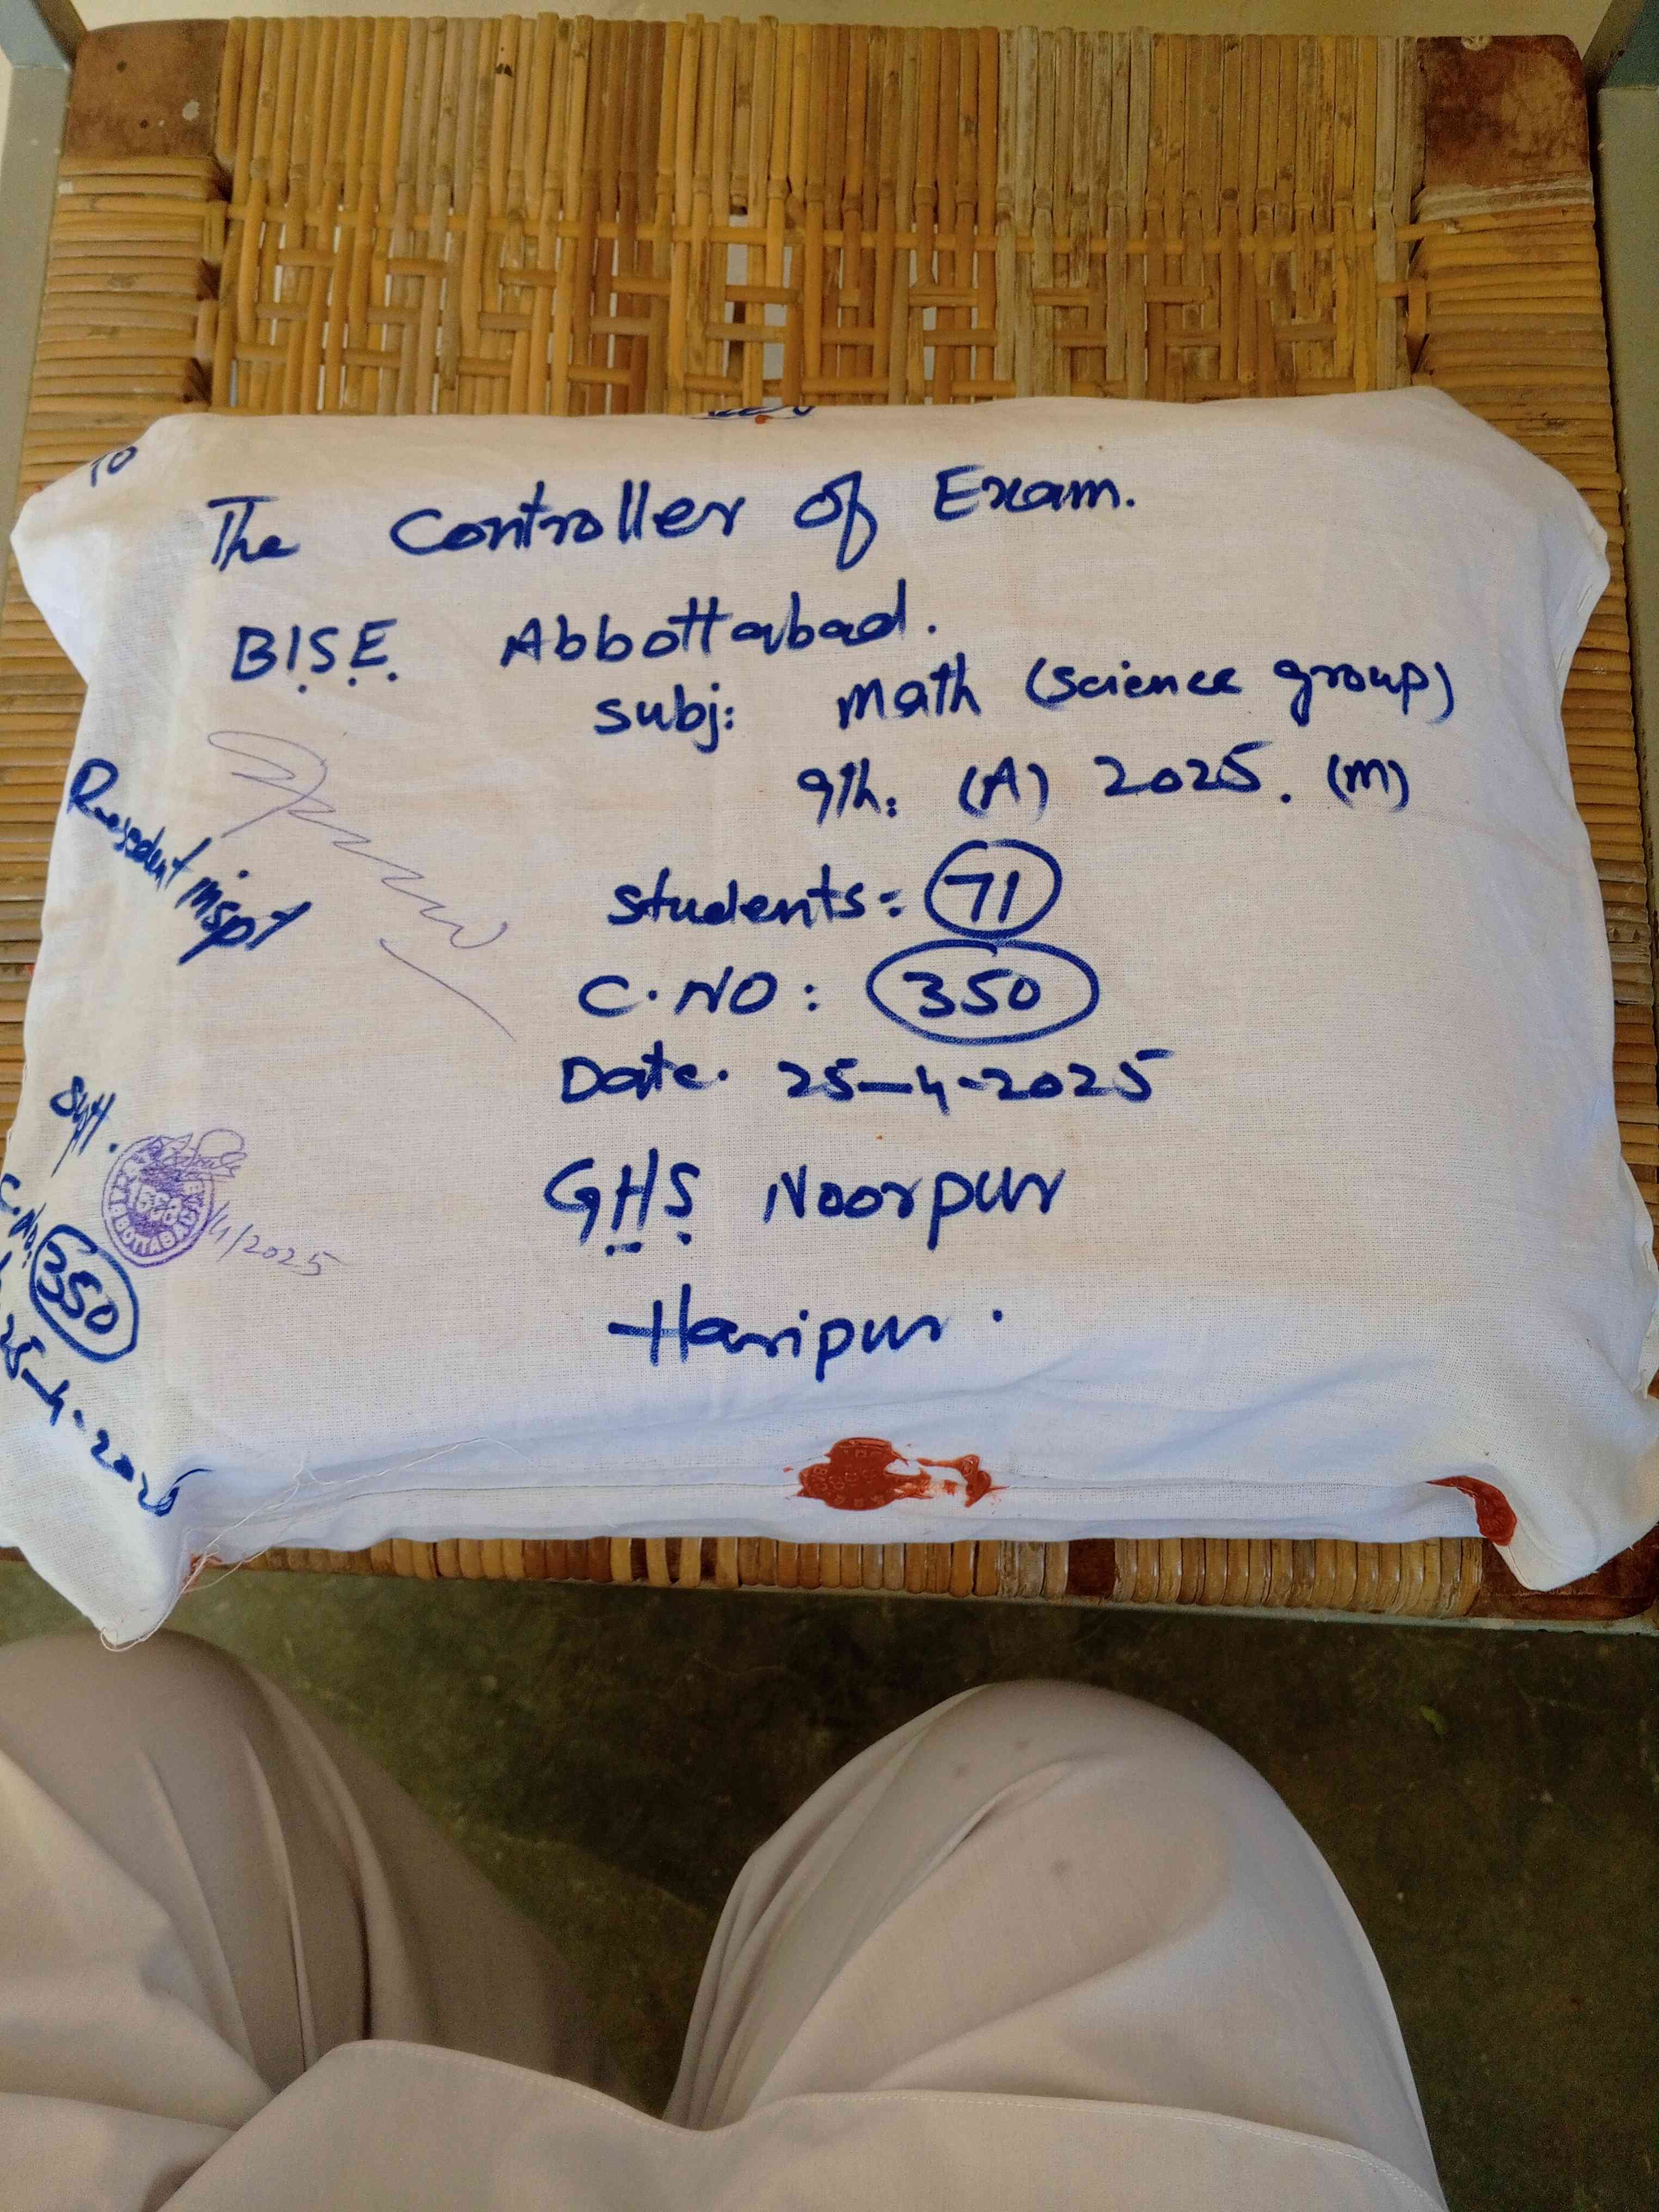 To
The Controller of Exam.
B.I.S.E. Abbottabad.
subj: Math (science group)
9th: (A) 2025. (M)
students = 71
C.NO: 350
Date. 25-4-2025
GHS Noorpur
Haripur.
Resedent inspt
Supt.
C.No. 350
25-4-2025
/4/2025